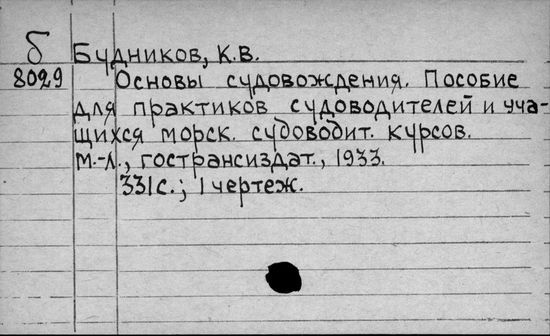 Б Будников, К.В.
8029 Основы судовождения. Пособие
для практиков судоводителей и уча-
щихся морск. судоводит. курсов.
М.-Л., гострансиздат., 1933.
331с.; 1 чертеж.